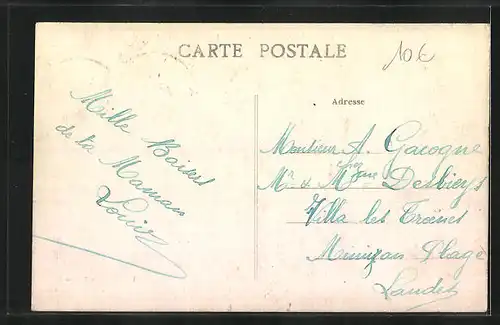 CARTE POSTALE
10€
Mille Baisers
de ta Maman
Louise
Adresse
Monsieur A. Gacogne
chez
Mr & Mme Desbieys
Villa les Troënes
Mimizan Plage
Landes